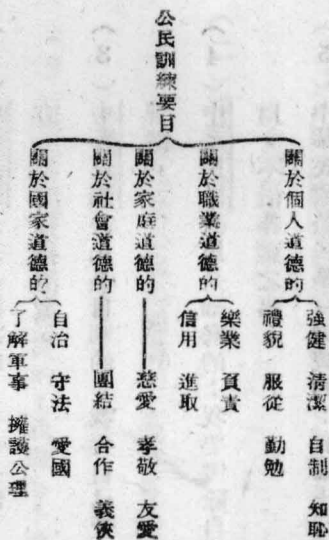 公民訓練要目
關於個人道德的
強健 清潔 自制 知恥
禮貌 服從 勤勉
關於職業道德的
樂業 負責
信用 進取
關於家庭道德的
慈愛 孝敬 友愛
關於社會道德的
團結 合作 義俠
關於國家道德的
自治 守法 愛國
了解軍事 擁護公理